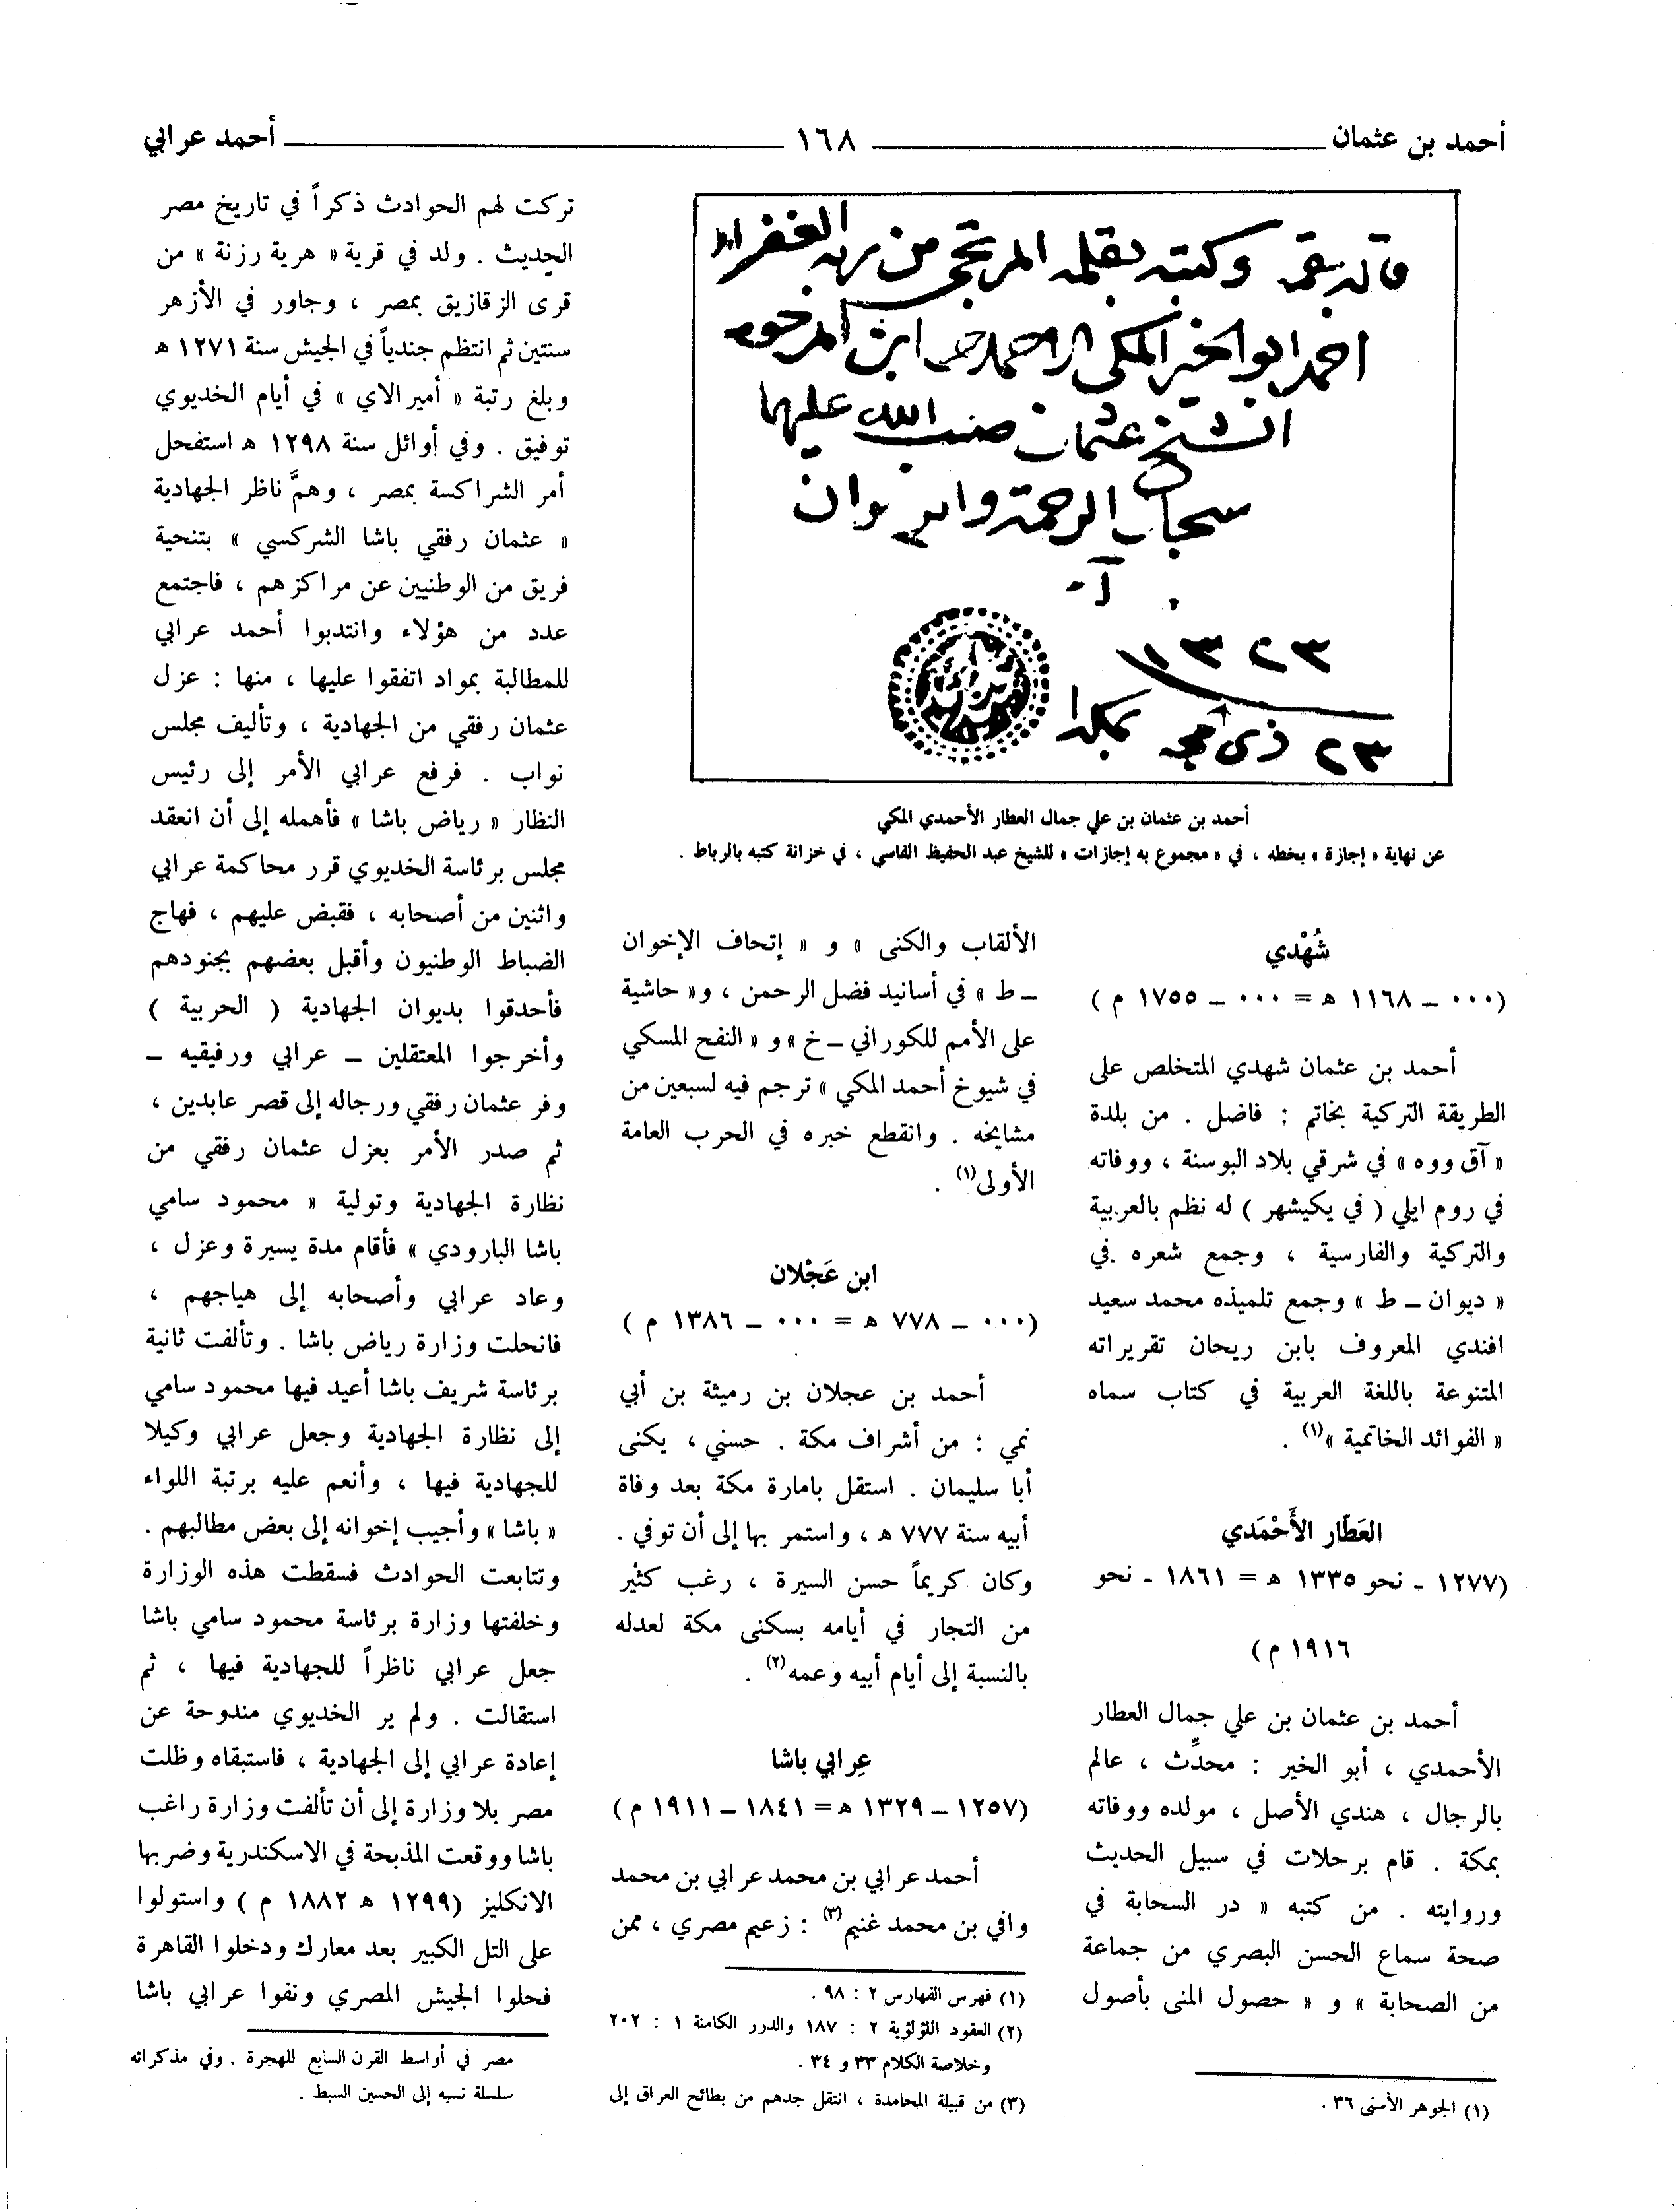 أحمد بن عثمان
١٦٨
أحمد عرابي
قاله بفمه وكتبه بقلمه المرتجي من ربه الغفران
احمد ابو الخير المكي الاحمدي ابن المرحوم
الشيخ عثمان صب الله عليهما
سحاب الرحمة والرضوان
١٣٢٣
٢٣ ذي حجة بمكة
أحمد بن عثمان بن علي جمال العطار الأحمدي المكي
عن نهاية « إجازة » بخطه ، في « مجموع به إجازات » للشيخ عبد الحفيظ الفاسي ، في خزانة كتبه بالرباط .
شُهْدي
(٠٠٠ ــ ١١٦٨ ه = ٠٠٠ ــ ١٧٥٥ م )
أحمد بن عثمان شهدي المتخلص على
الطريقة التركية بخاتم : فاضل . من بلدة
« آق ووه » في شرقي بلاد البوسنة ، ووفاته
في روم ايلي ( في يكيشهر ) له نظم بالعربية
والتركية والفارسية ، وجمع شعره في
« ديوان ــ ط » وجمع تلميذه محمد سعيد
افندي المعروف بابن ريحان تقريراته
المتنوعة باللغة العربية في كتاب سماه
« الفوائد الخاتمية »(١) .
العَطّار الأَحْمَدي
(١٢٧٧ - نحو ١٣٣٥ ه = ١٨٦١ - نحو
١٩١٦ م )
أحمد بن عثمان بن علي جمال العطار
الأحمدي ، أبو الخير : محدِّث ، عالم
بالرجال ، هندي الأصل ، مولده ووفاته
بمكة . قام برحلات في سبيل الحديث
وروايته . من كتبه « در السحابة في
صحة سماع الحسن البصري من جماعة
من الصحابة » و « حصول المنى بأصول
(١) الجوهر الأسنى ٣٦ .
الألقاب والكنى » و « إتحاف الإخوان
ــ ط » في أسانيد فضل الرحمن ، و« حاشية
على الأمم للكوراني ــ خ » و « النفح المسكي
في شيوخ أحمد المكي » ترجم فيه لسبعين من
مشايخه . وانقطع خبره في الحرب العامة
الأولى(١) .
ابن عَجْلان
(٠٠٠ ــ ٧٧٨ ه = ٠٠٠ ــ ١٣٨٦ م )
أحمد بن عجلان بن رميثة بن أبي
نمي : من أشراف مكة . حسني ، يكنى
أبا سليمان . استقل بامارة مكة بعد وفاة
أبيه سنة ٧٧٧ ه ، واستمر بها إلى أن توفي .
وكان كريماً حسن السيرة ، رغب كثير
من التجار في أيامه بسكنى مكة لعدله
بالنسبة إلى أيام أبيه وعمه(٢) .
عِرابي باشا
(١٢٥٧ ــ ١٣٢٩ ه = ١٨٤١ ــ ١٩١١ م )
أحمد عرابي بن محمد عرابي بن محمد
وافي بن محمد غنيم(٣) : زعيم مصري ، ممن
(١) فهرس الفهارس ٢ : ٩٨ .
(٢) العقود اللؤلؤية ٢ : ١٨٧ والدرر الكامنة ١ : ٢٠٢
وخلاصة الكلام ٣٣ و ٣٤ .
(٣) من قبيلة المحامدة ، انتقل جدهم من بطائح العراق إلى
تركت لهم الحوادث ذكراً في تاريخ مصر
الحديث . ولد في قرية « هرية رزنة » من
قرى الزقازيق بمصر ، وجاور في الأزهر
سنتين ثم انتظم جندياً في الجيش سنة ١٢٧١ ه
وبلغ رتبة « أمير الاي » في أيام الخديوي
توفيق . وفي أوائل سنة ١٢٩٨ ه استفحل
أمر الشراكسة بمصر ، وهمَّ ناظر الجهادية
« عثمان رفقي باشا الشركسي » بتنحية
فريق من الوطنيين عن مراكزهم ، فاجتمع
عدد من هؤلاء وانتدبوا أحمد عرابي
للمطالبة بمواد اتفقوا عليها ، منها : عزل
عثمان رفقي من الجهادية ، وتأليف مجلس
نواب . فرفع عرابي الأمر إلى رئيس
النظار « رياض باشا » فأهمله إلى أن انعقد
مجلس برئاسة الخديوي قرر محاكمة عرابي
واثنين من أصحابه ، فقبض عليهم ، فهاج
الضباط الوطنيون وأقبل بعضهم بجنودهم
فأحدقوا بديوان الجهادية ( الحربية )
وأخرجوا المعتقلين ــ عرابي ورفيقيه ــ
وفر عثمان رفقي ورجاله إلى قصر عابدين ،
ثم صدر الأمر بعزل عثمان رفقي من
نظارة الجهادية وتولية « محمود سامي
باشا البارودي » فأقام مدة يسيرة وعزل ،
وعاد عرابي وأصحابه إلى هياجهم ،
فانحلت وزارة رياض باشا . وتألفت ثانية
برئاسة شريف باشا أعيد فيها محمود سامي
إلى نظارة الجهادية وجعل عرابي وكيلا
للجهادية فيها ، وأنعم عليه برتبة اللواء
« باشا » وأجيب إخوانه إلى بعض مطالبهم .
وتتابعت الحوادث فسقطت هذه الوزارة
وخلفتها وزارة برئاسة محمود سامي باشا
جعل عرابي ناظراً للجهادية فيها ، ثم
استقالت . ولم ير الخديوي مندوحة عن
إعادة عرابي إلى الجهادية ، فاستبقاه وظلت
مصر بلا وزارة إلى أن تألفت وزارة راغب
باشا ووقعت المذبحة في الاسكندرية وضربها
الانكليز (١٢٩٩ ه ١٨٨٢ م ) واستولوا
على التل الكبير بعد معارك ودخلوا القاهرة
فحلوا الجيش المصري ونفوا عرابي باشا
مصر في أواسط القرن السابع للهجرة . وفي مذكراته
سلسلة نسبه إلى الحسين السبط .